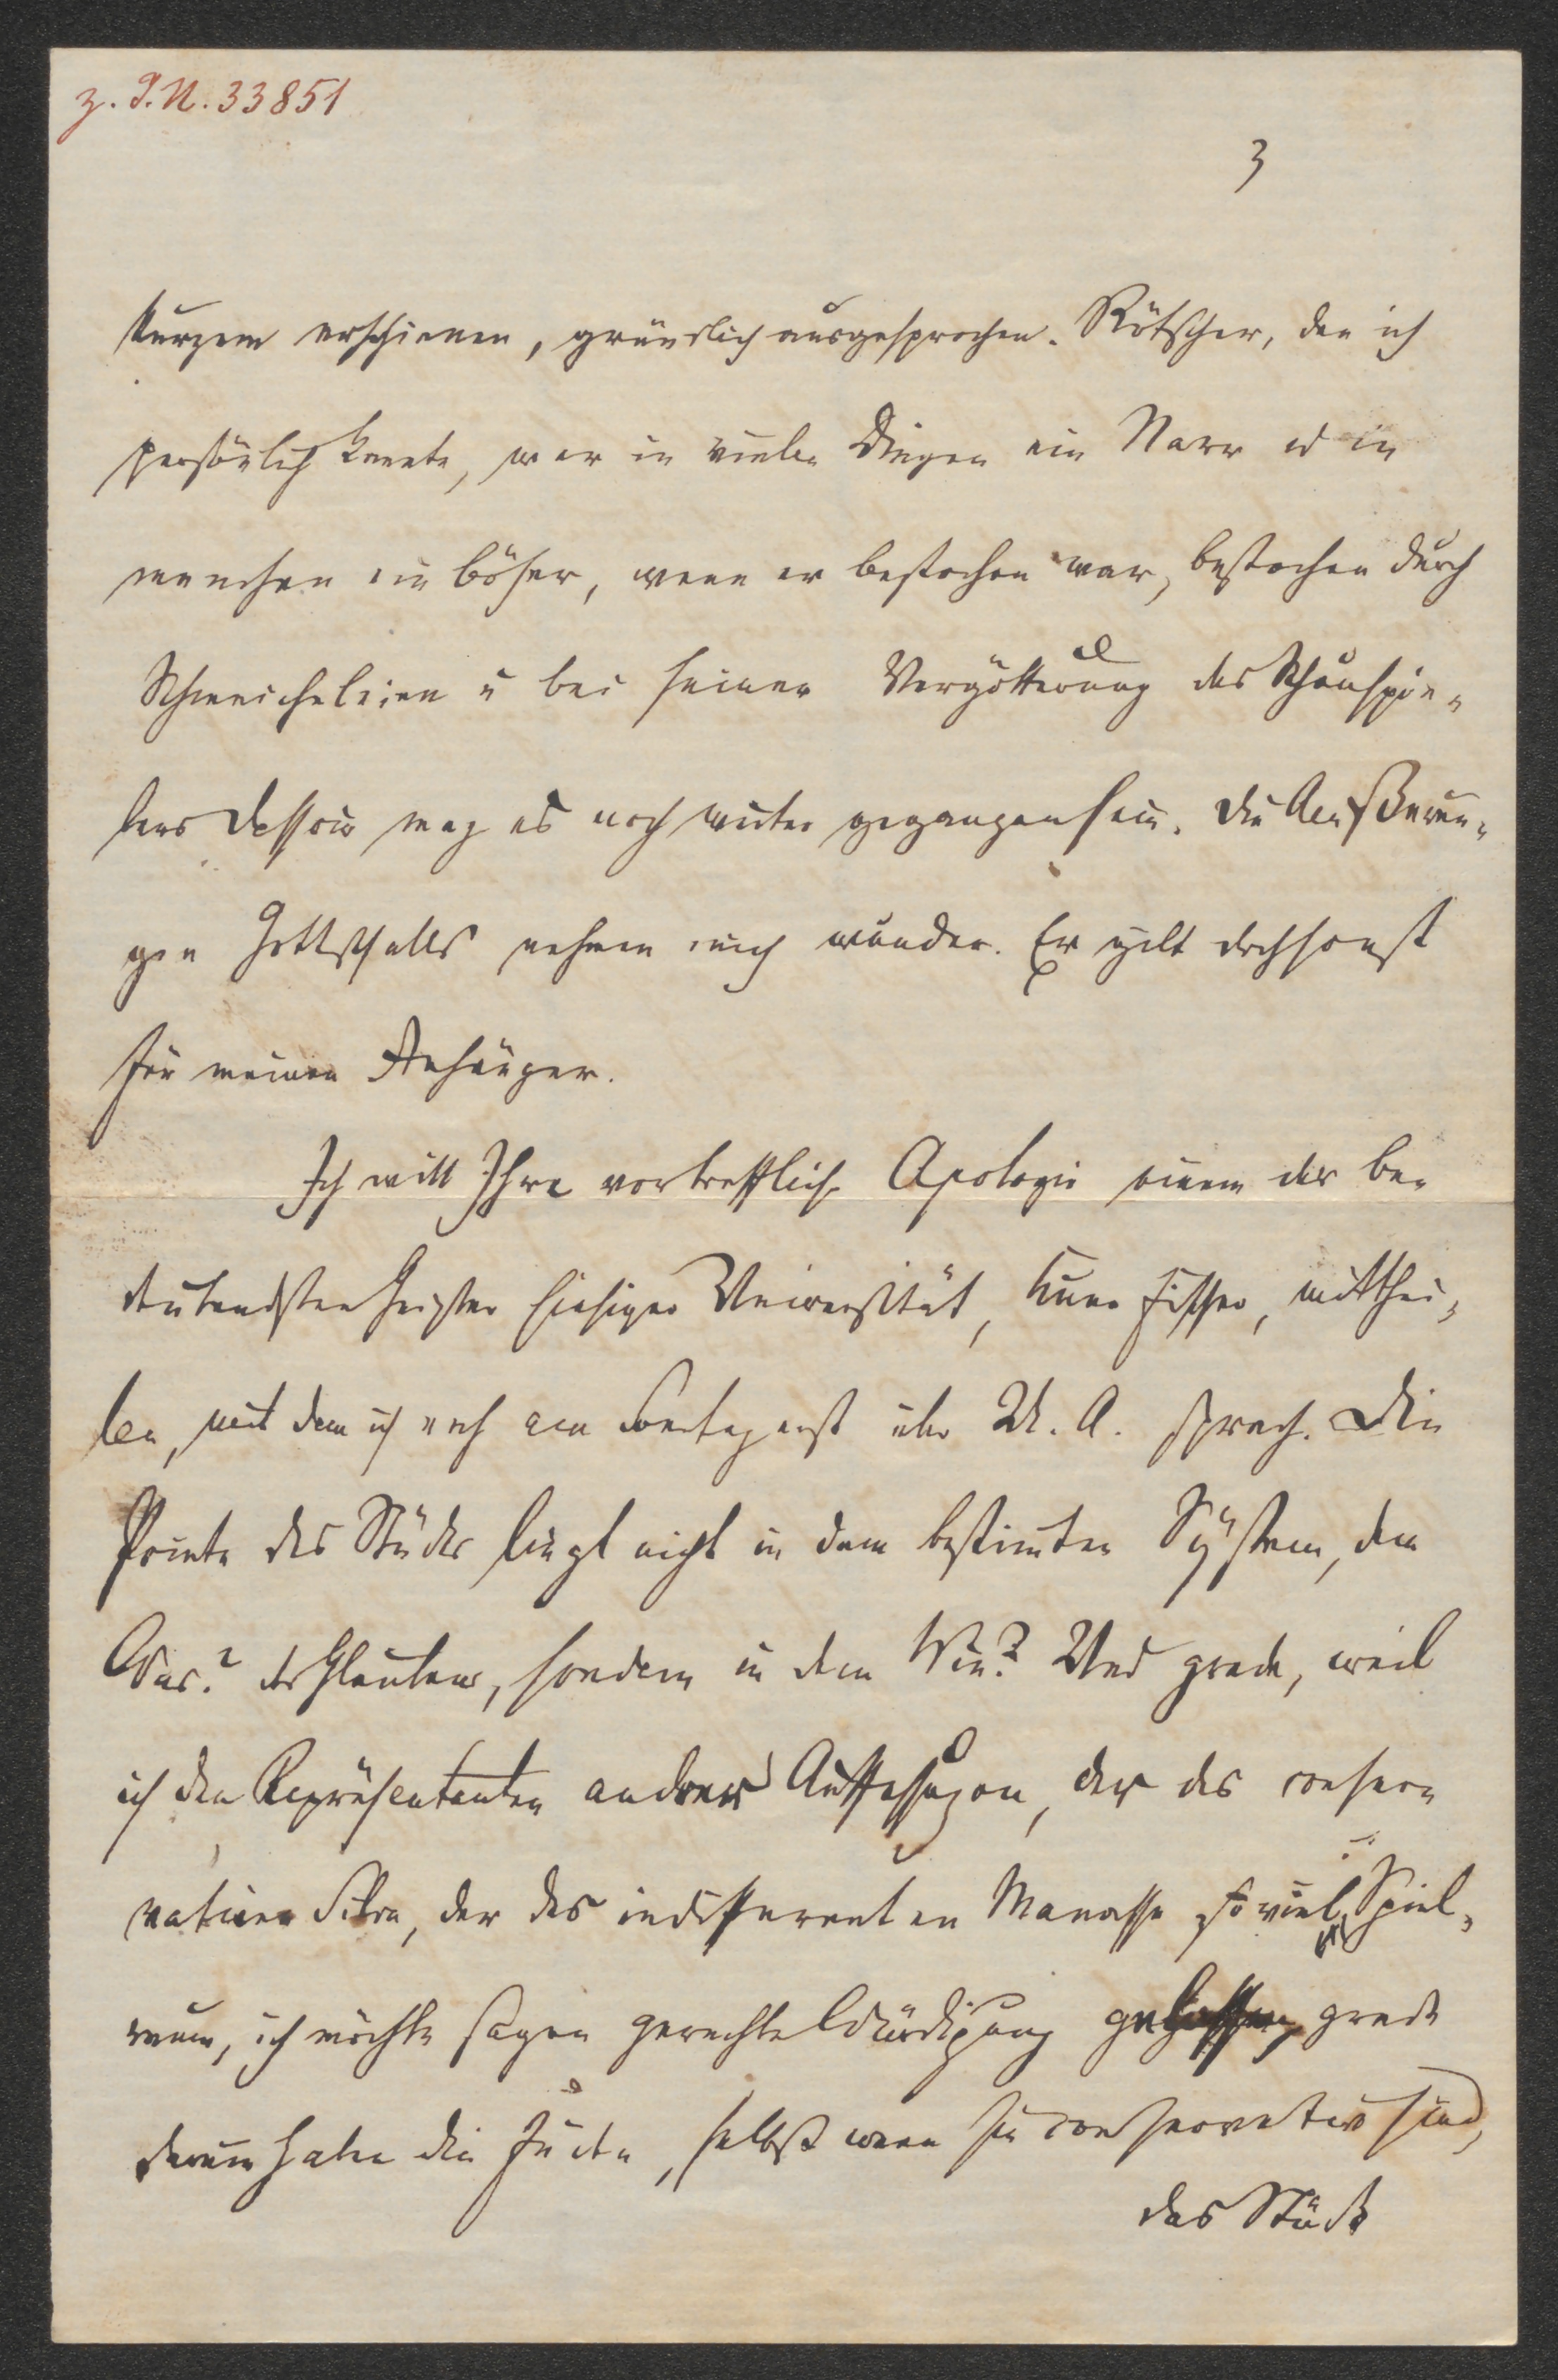 z. I.N. 33851
3
Kurzem erschienen, gründlich ausgesprochen. Rötscher, den ich
persönlich kannte, war in vielen Dingen ein Narr u in
manchen ein böser, wenn er bestochen war, bestochen durch
Schmeicheleien u bei seiner Vergötterung des Schauspie-
lers Dessoir mag es noch weiter gegangen sein. Die Aeußerun-
gen Gottschalls nehmen mich wunder. Er gilt doch sonst
für meinen Anhänger.
Ich will Ihre vortreffliche Apologie einem der be-
deutendsten Geister hiesiger Universität, Kuno Fischer, mitthei-
len, mit dem ich noch am Sonntag erst über U. A. sprach. Die
Pointe des Stücks liegt nicht in dem bestimten System, dem
Was? des Glaubens, sondern in dem Wie? Und grade, weil
ich den Repräsentanten andrer Auffassungen, der des conser-
vativen Silva, der des indifferenten Manasse so viel Spiel-
raum, ich möchte sagen gerechte Würdigung gelassen, grade
darum haben die Juden, selbst wenn sie conservativ sind,
das Stück